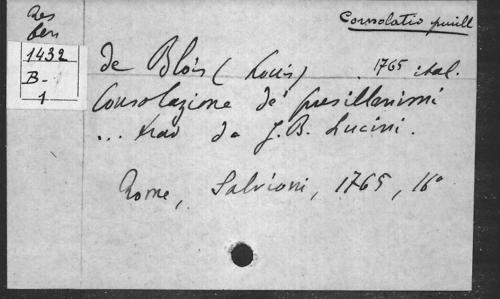 Res
Consolatio pusill
1432
B-
1
de Blois (Louis) 1765 ital.
Consolazione de' pusillanimi
... trad da J. B. Lucini.
Rome, Salvioni, 1765, 16°